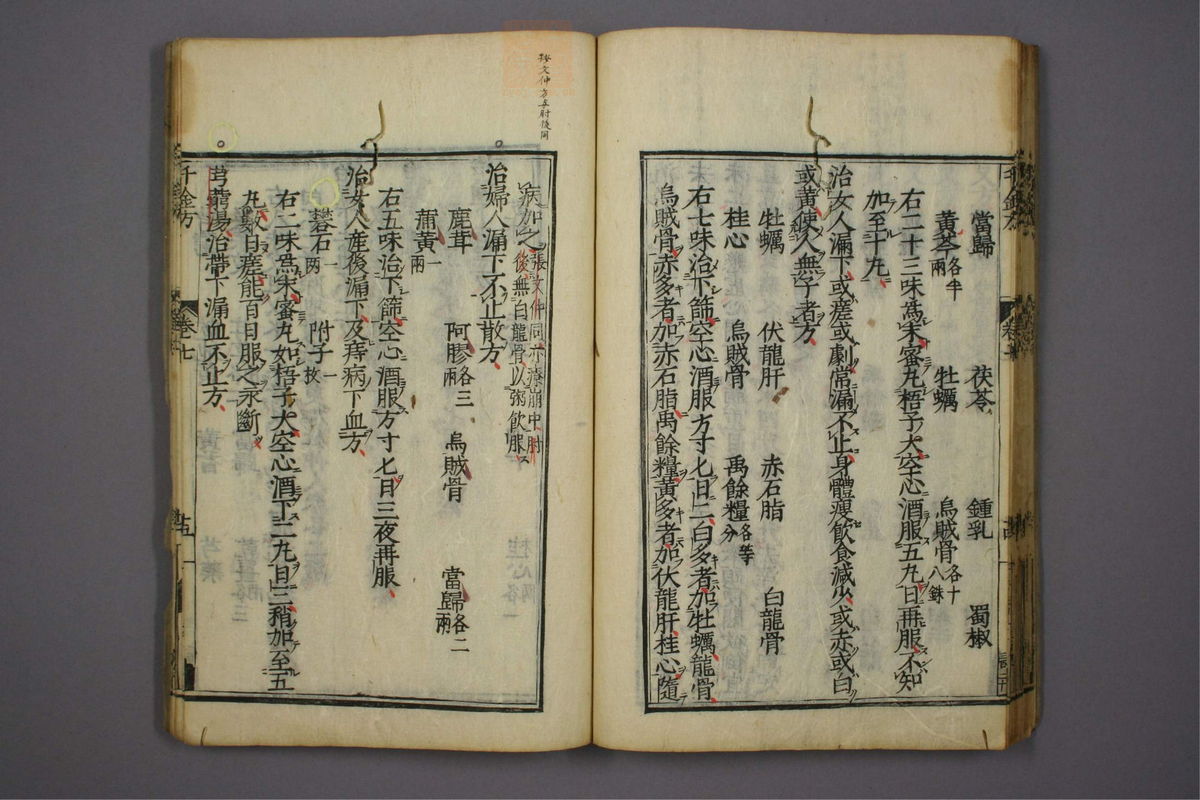 當歸 茯苓 鍾乳 蜀椒
黃芩各半兩 牡蠣 烏賊骨各十八銖
右二十三味爲末蜜丸梧子大空心酒服五丸日再服不知
加至十丸
治女人漏下或瘥或劇常漏不止身體瘦飲食減少或赤或白
或黃使人無子者方
牡蠣 伏龍肝 赤石脂 白龍骨
桂心 烏賊骨 禹餘糧各等分
右七味治下篩空心酒服方寸匕日二白多者加牡蠣龍骨
烏賊骨赤多者加赤石脂禹餘糧黃多者加伏龍肝桂心隨
千金方 卷七
病加之張文仲同亦療崩中肘後無白龍骨以粥飲服
治婦人漏下不止散方
鹿茸 阿膠各三兩 烏賊骨 當歸各二兩
蒲黃一兩
右五味治下篩空心酒服方寸匕日三夜再服
治女人產後漏下及痔病下血方
礬石一兩 附子一枚
右二味爲末蜜丸如梧子大空心酒下二丸日三稍加至五
丸數日瘥能百日服之永斷
芎藭湯治帶下漏血不止方
千金方 卷七
按文仲方与肘後同